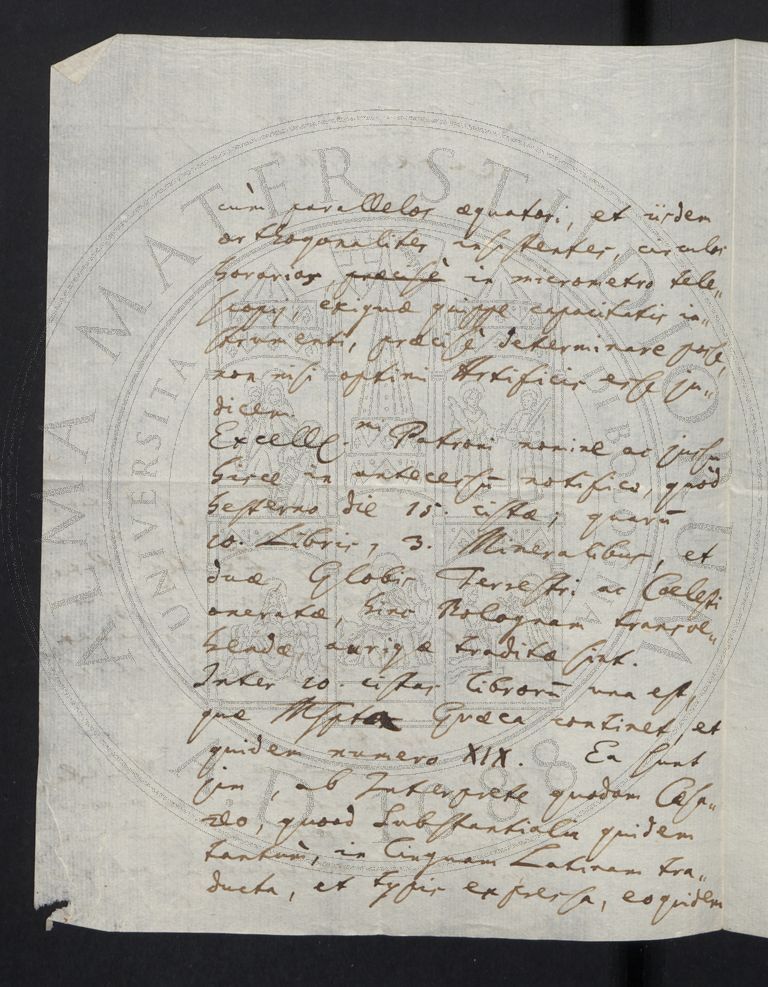 cùm parallelos æquatori, et iisdem
orthogonaliter insistentes, circulos
horarios, præcisè in micrometro tele„
scopij, exiguæ quippe capacitatis in„
strumenti, præcisè determinare posse,
non nisi optimi Artificis esse ju„
dicem.
Excellᵐⁱ Patroni nomine ac jussu
hisce in antecessū notifico, quòd
hesterno die 15. cistæ; quarū
10. Libris, 3. Mineralibus, et
duæ Globis Terrestri ac Cœlesti
oneratæ, hinc Bolognam transve„
hendæ, aurigæ traditæ sint.
Inter 10. cistas librorū una est,
quæ Mspta Græca continet, et
quidem numero XIX. Ea sunt
jam, ab Interprete quodam Cæsa„
reo, quoad Substantialia quidem
tantùm, in linguam Latinam tra„
ducta, et typis expressa, eoquidem
ALMA MATER STUDIORUM
UNIVERSITA
A.D. 1088